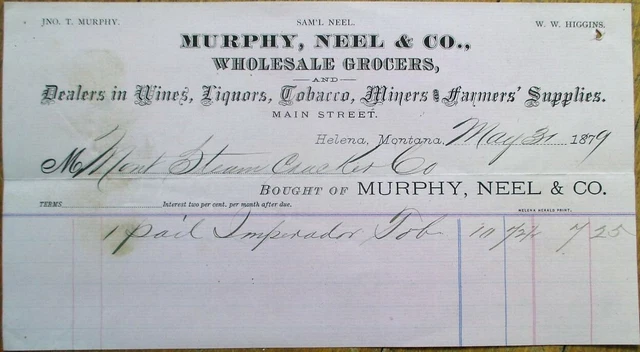 JNO. T. MURPHY. SAM'L NEEL. W. W. HIGGINS.
MURPHY, NEEL & CO.,
WHOLESALE GROCERS,
AND
Dealers in Wines, Liquors, Tobacco, Miners & Farmers' Supplies.
MAIN STREET.
Helena, Montana, May 31 1879
M Mont Steam Cracker Co
BOUGHT OF MURPHY, NEEL & CO.
TERMS Interest two per cent. per month after due.
HELENA HERALD PRINT.
1 pail Imperador Tob 10 72½ 7 25